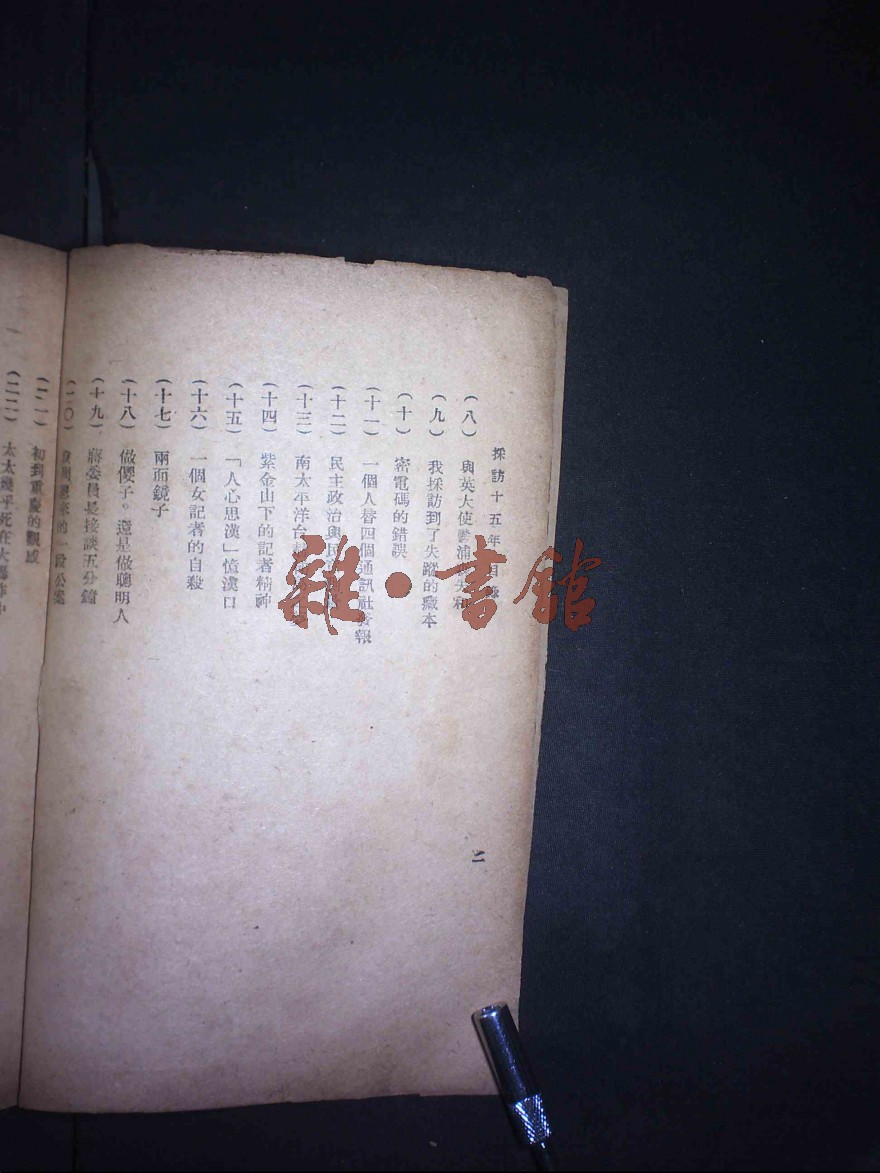 採訪十五年目錄
(八) 與英大使
(九) 我採訪到了失蹤的藏本
(十) 密電碼的錯誤
(十一) 一個人替四個通訊社發報
(十二) 民主政治與民
(十三) 南太平洋台
(十四) 紫金山下的記者精神
(十五) 「人心思漢」憶漢口
(十六) 一個女記者的自殺
(十七) 兩面鏡子
(十八) 做傻子。還是做聰明人
(十九) 蔣委員長接談五分鐘
(二〇) 的一段公案
(二一) 初到重慶的觀感
(二二) 太太幾乎死在大轟炸中
二
雜·書館